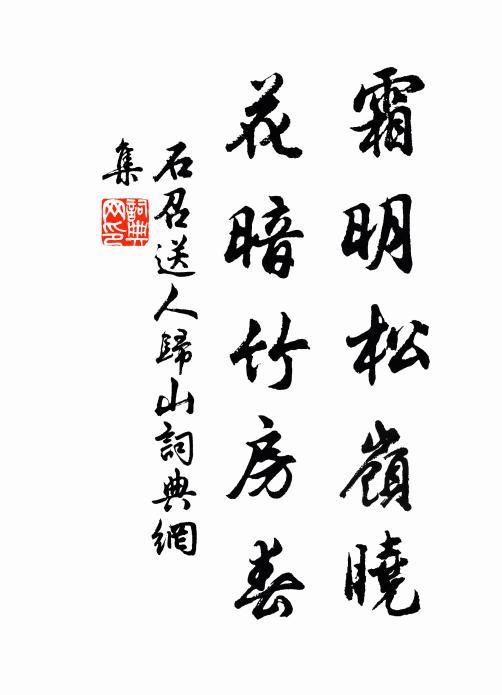 霜明松嶺曉
花暗竹房春
石召送人歸山詞典網
集
詞典网印